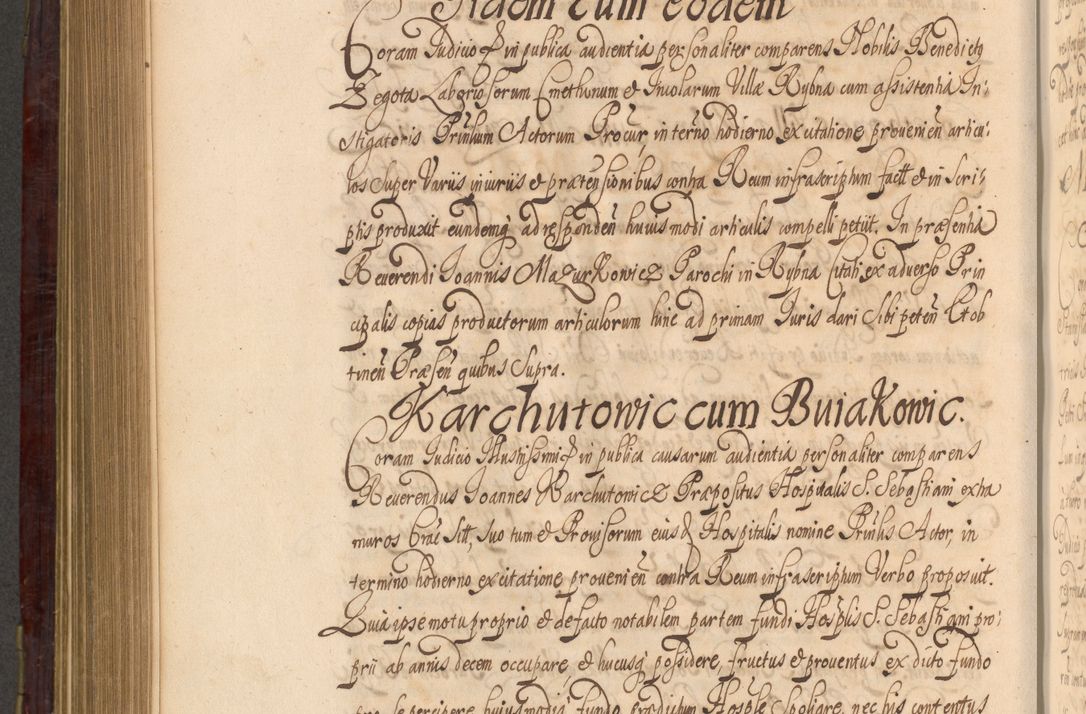 Iidem cum eodem
Coram Judicio &c in publica audientia personaliter comparens Nobilis Benedictg
Zegota Laboriosorum Cmethonum et Incolarum Villæ Rybna cum assistentia In-
stigatoris Prinlium Actorum Procur, in termo hodierno ex citatione provenien articu-
los super Variis iniuriis et prætensionibus contra Reum infrascriptum factt et in scri-
ptis produxit eundemq ad responden huiusmodi articulis compelli petiit. In præsentia
Reverendi Joannis Mazurkowicz Parochi in Rybna Citati ex adverso Prin
cipalis copias productorum articulorum hinc ad primam Juris dari sibi peten et ob
tinen Præsen quibus supra.
Karchutowic cum Buiakowic.
Coram Judicio Illustrissimi &c in publica causarum audientia personaliter comparens
Reverendus Joannes Karchutowicz Præpositus Hospitalis S. Sebastiani extra
muros Crac sitt, suo tum et Provisorum eius Hospitalis nomine Prinlis Actor, in
termino hodierno ex citatione provenien contra Reum infrascriptum Verbo proposuit.
Quia ipse motu proprio et de facto notabilem partem fundi Hosplis S. Sebastiani pro-
prii ab annis decem occupare, et hucusq possidere, fructus et proventus ex dicto fundo
pro se percipere huiusmodiq fundo prædictum Hosple spoliare, nec his contentus